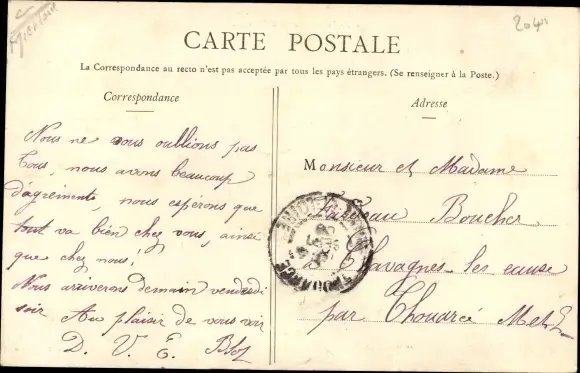 204
CARTE POSTALE
La Correspondance au recto n'est pas acceptée par tous les pays étrangers. (Se renseigner à la Poste.)
Correspondance
Nous ne vous oublions pas
Tous, nous avons beaucoup
d'agréments, nous espérons que
tout va bien chez vous, ainsi
que chez nous!
Nous arriverons demain vendredi
soir Au plaisir de vous voir
D. V. E.
Adresse
Monsieur et Madame
Boucher
à Chavagnes les eause
par Thouarcé
THOUARCÉ